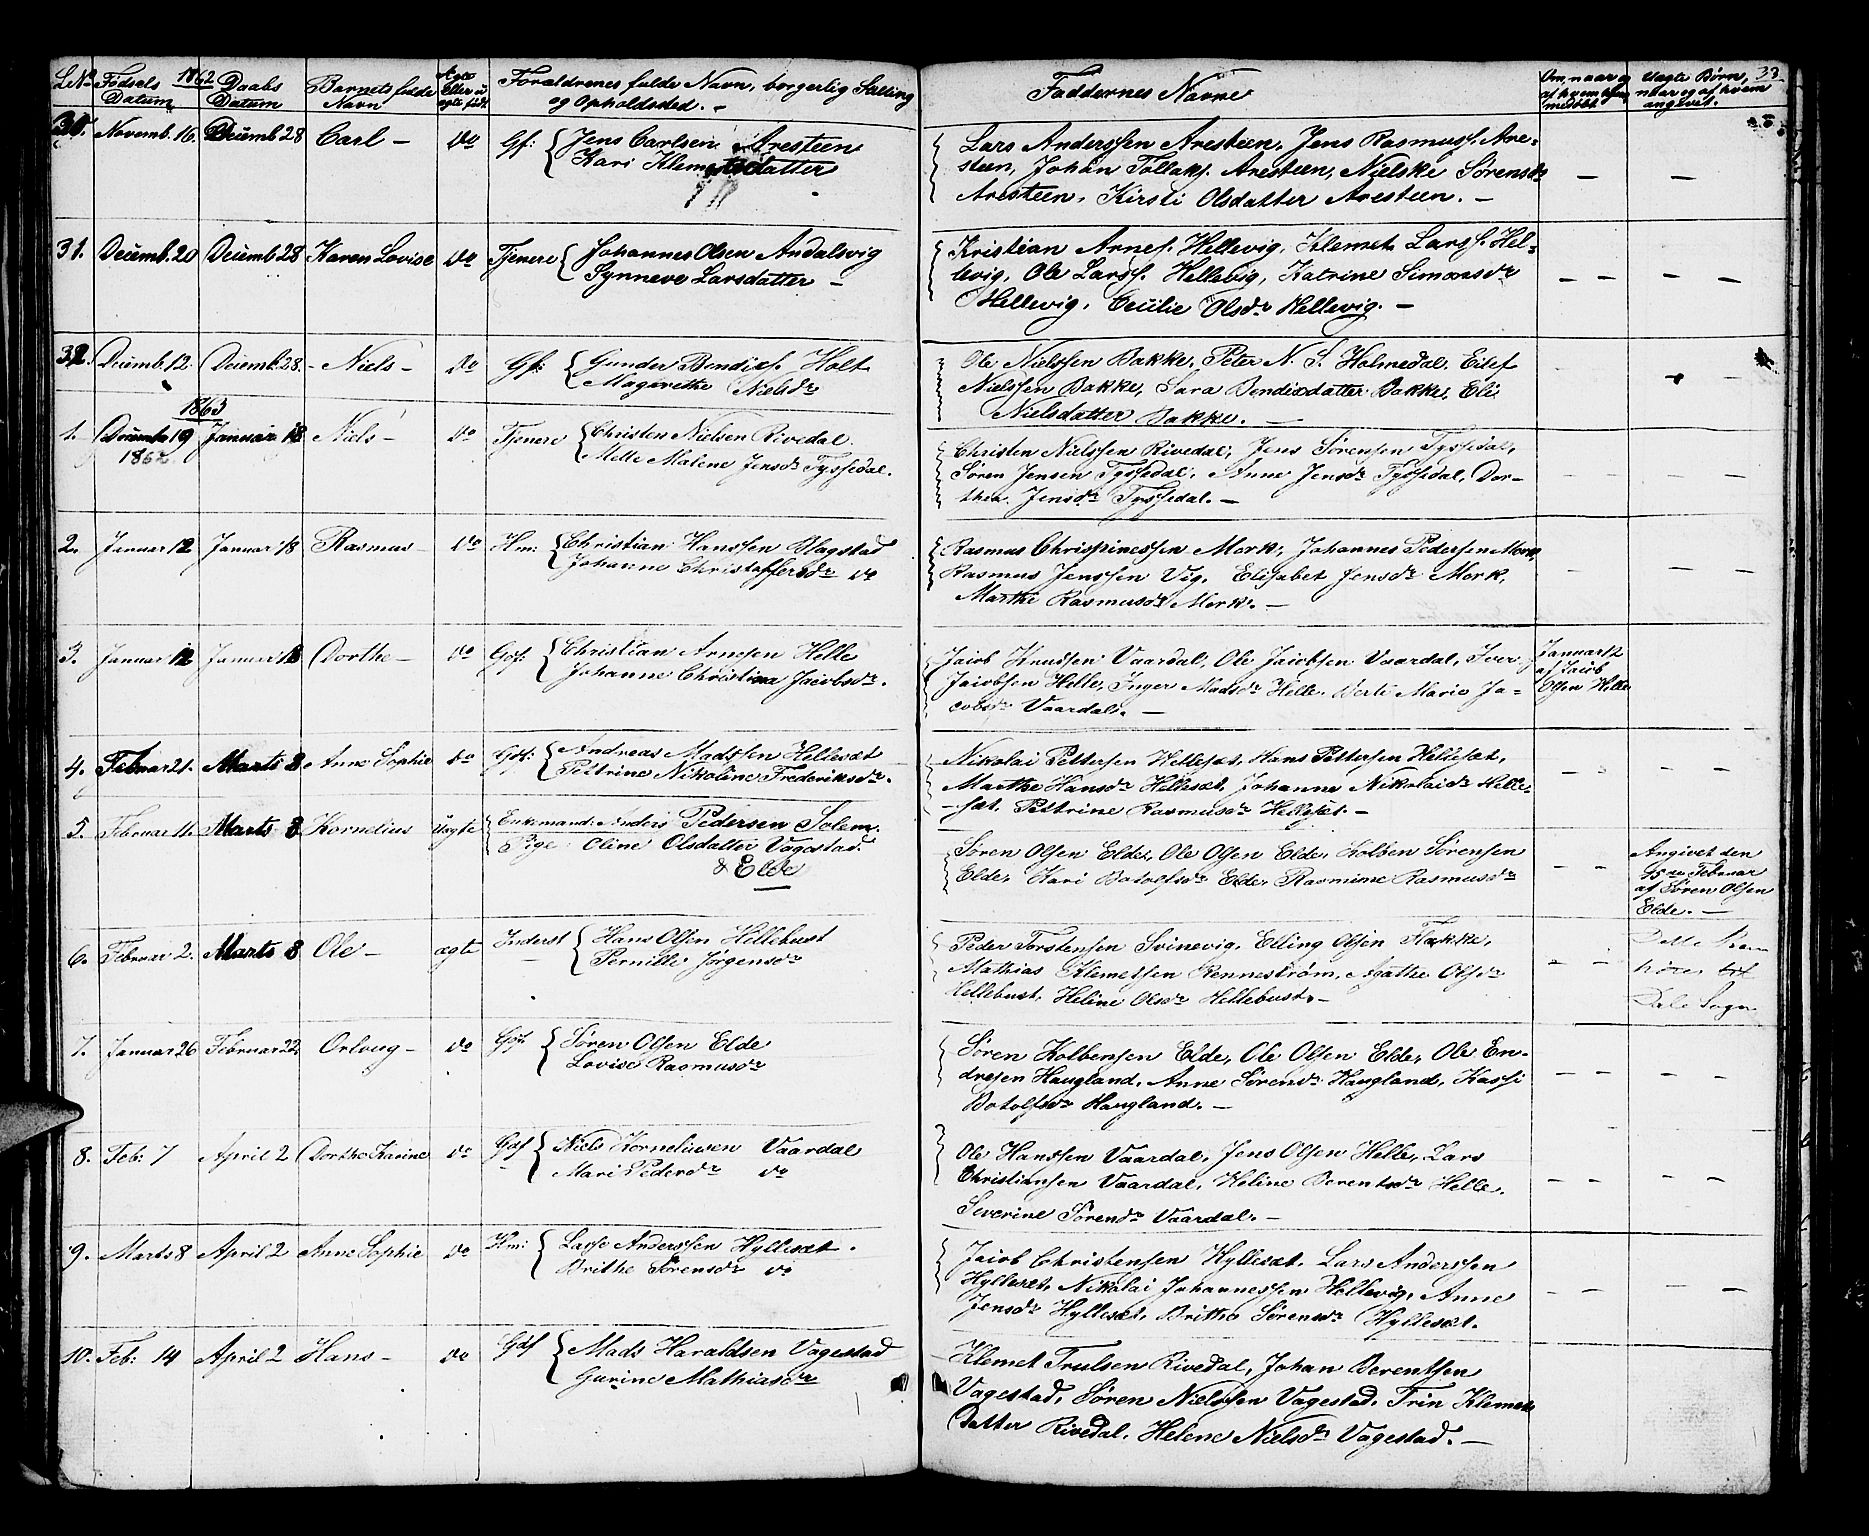 L.No Fødsels Datum 1862 Daabs Datum Barnets fulde Navn Ægte Eller uægte født Forældrenes fulde Navn, borgerlig Stilling og Opholdsted. - Faddernes Navne Om, naar og af hvem hjemmedøbt uægte Børn, naar og af hvem angivet. 33
30. Novemb. 16. Decemb 28 Carl - do Gf: Jens Carlsen Aresteen
Kari Klemetsdatter
Lars Anderssen Aresteen, Jens Rasmuss. Are-
steen, Johan Tollaks. Aresteen, Nielske Sørensdr
Aresteen, Kirsti Olsdatter Aresteen. -
31. Decemb. 20 Decemb 28 Karen Lovise do Tjenere Johannes Olsen Andalsvig
Synneve Larsdatter -
Kristian Arnes. Hellevig, Klemet Larss. Hel-
levig, Ole Larss. Hellevig, Katrine Simonsdr
Hellevig, Cecilie Olsdr Hellevig. -
32. Decemb. 12. Decemb. 28. - Niels - do Gf: Gunder Bendixs. Holt
Magrethe Nielsdr
Ole Nielssen Bakke, Peter N. S. Holmedal, Eilef
Nielssen Bakke, Sara Bendixdatter Bakke, Eli
Nielsdatter Bakke. -
1863
1. Decemb 19 1862 Januar 18 Niels - do Tjenere Christen Nielsen Rivedal.
Mette Malene Jensdr Tyssedal.
Christen Nielssen Rivedal, Jens Sørensen Tyssedal,
Søren Jensen Tyssedal, Anne Jensdr Tyssedal, Dor-
thea Jensdr Tyssedal. -
2. Januar 12 Januar 18 Rasmus - do Hm: Christian Hanssen Slagstad
Johanne Christoffersdr do
Rasmus Chrispinessen Mork, Johannes Pedersen Mork,
Rasmus Jenssen Vig, Elisabet Jensdr Mork,
Marthe Rasmusdr Mork. -
3. Januar 12 Januar 18 Dorthe - do Gdf: Christian Arnesen Helle
Johanne Christina Jacobsdr.
Jacob Knudsen Vaardal, Ole Jacobsen Vaardal, Iver
Jacobsen Helle, Inger Madsdr Helle, Berte Marie Ja-
cobsdr Vaardal. -
Januar 12
af Jacob
Olsen Helle
4. Febuar 21. Marts 8 Anne Sophie do Gdf: Andreas Madssen Hellesæt
Pettrine Nikoline Frederiksdr.
Nikolai Pettersen Hellesæt, Hans Pettersen Hellesæt,
Marthe Hansdr Hellesæt, Johanne Nikolaidr Helle-
sæt, Pettrine Rasmusdr Hellesæt. -
5. Februar 11. Marts 8 Kornelius uægte Enkemand: Anders Pedersen Solem.
Pige: Oline Olsdatter Vagestad
& Elde
Søren Olsen Elde, Ole Olsen Elde, Kolben Sørensen
Elde, Kari Botolfsdr Elde, Rasmine Rasmusdr
Angivet den
15de Febuar
af Søren Olsen
Elde. -
6. Februar 2. Marts 8 Ole - ægte Inderst Hans Olsen Hellebust
Pernille Jørgensdr
Peder Torstensen Svinevig, Elling Olsen Flekke,
Mathias Klemetsen Rennestrøm, Agathe Olsdr
Hellebust, Heline Olsdr Hellebust. -
Dette Barn
hører til
Dale Sogn
7. Januar 26 Februar 22. Orloug - do Gdf. Søren Olsen Elde
Lovise Rasmusdr
Søren Kolbensen Elde, Ole Olsen Elde, Ole En-
dresen Haugland, Anne Sørensdr Haugland, Kassi
Botolfsdr Haugland. -
8. Feb: 7 April 2 Dorthe Karine do Gdf Niels Korneliussen Vaardal
Mari Pedersdr do
Ole Hanssen Vaardal, Jens Olsen Helle, Lars
Christiansen Vaardal, Heline Berentsdr Helle.
Severine Sørensdr Vaardal. -
9. Marts 8 April 2 Anne Sophie do Hm: Lasse Anderssen Hyllesæt.
Brithe Sørensdr do
Jacob Christensen Hyllesæt, Lars Anderssen
Hyllesæt, Nikolai Johannessen Hellevig, Anne
Jensdr Hyllesæt, Brithe Sørensdr Hyllesæt.
10. Feb: 14 April 2 Hans - do Gdf Mads Haraldsen Vagestad
Gurine Mathiasdr
Klemet Trulsen Rivedal, Johan Berentsen
Vagestad, Søren Nielssen Vagestad, Trin Klemets
Datter Rivedal, Helene Nielsdr Vagestad. -